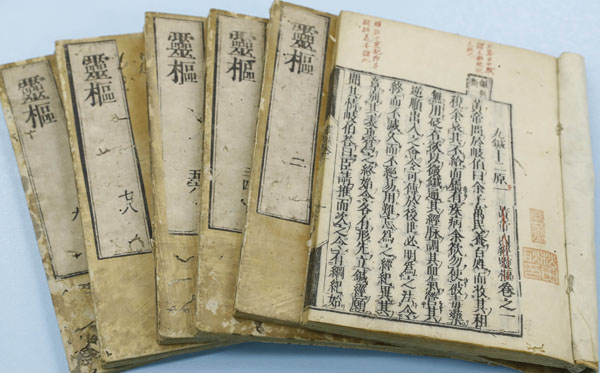 黃帝內經靈樞卷之一
九鍼十二原一
黃帝問於岐伯曰余子萬民養百姓而收其租
稅余哀其不給而屬有疾病余欲勿使被毒藥
無用砭石欲以微鍼通其經脉調其血氣營其
逆順出入之會令可傳於後世必明爲之法令
終而不滅久而不絕易用難忘爲之經紀異其
章別其表裏爲之終始令各有形先立鍼經願
聞其情岐伯荅曰臣請推而次之令有綱紀始
靈樞
二
靈樞
三四
靈樞
五六
靈樞
七八
靈樞
九